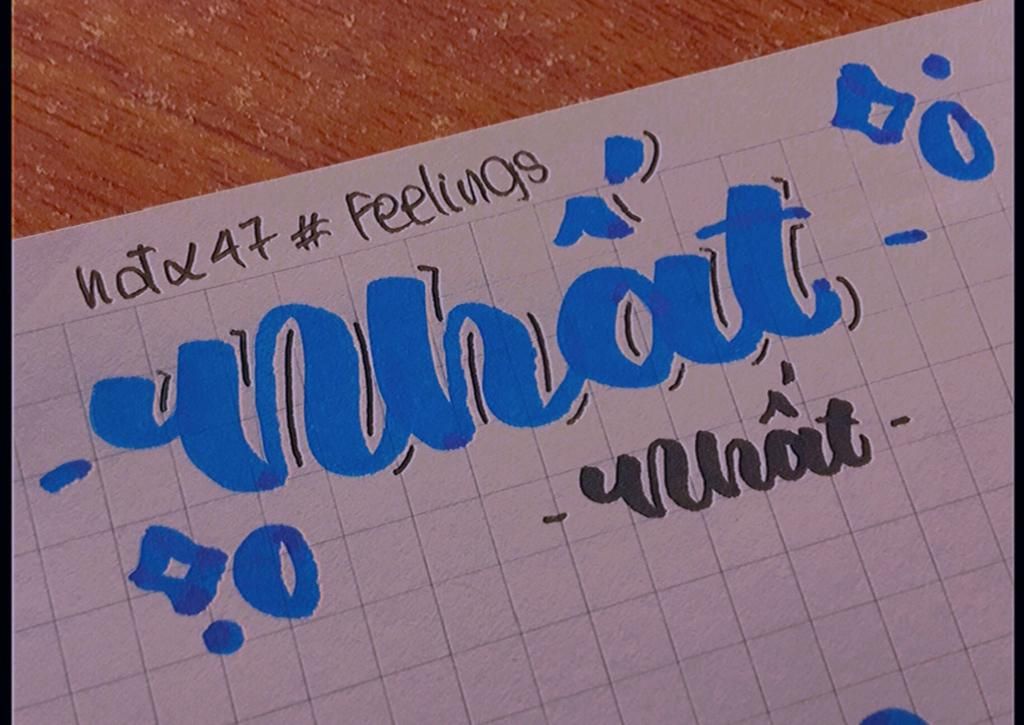 hata47 # Feelings
Nhất
- Nhất -